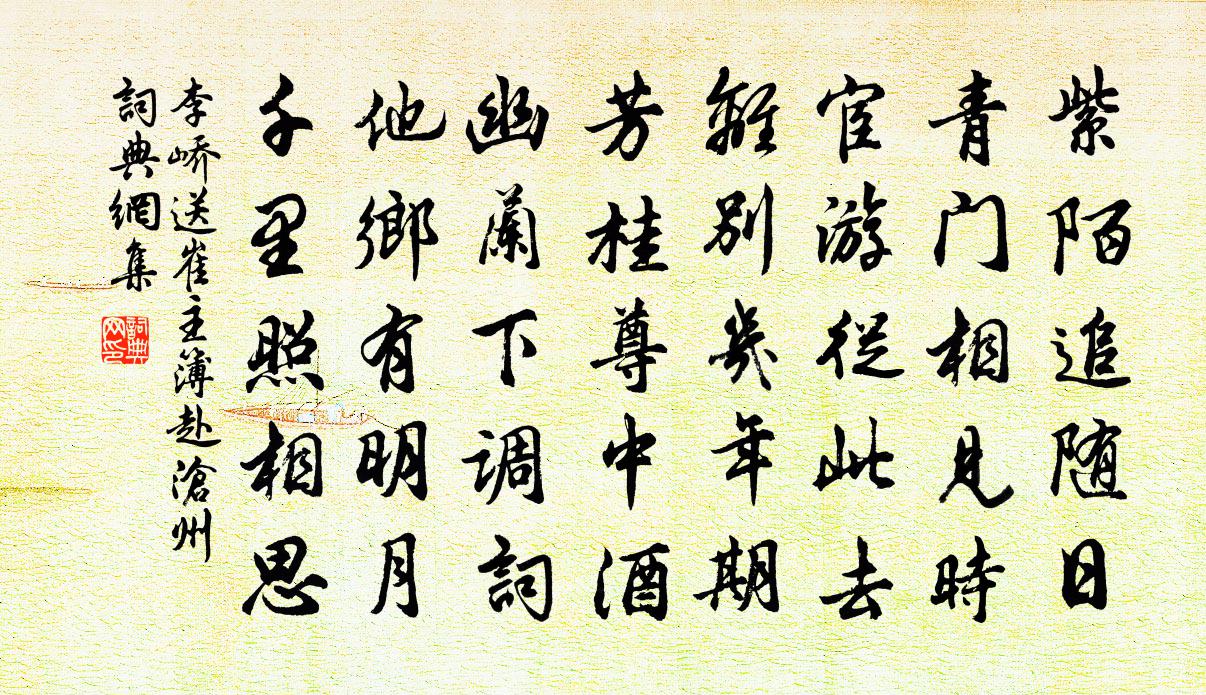 紫陌追随日
青门相見時
宦游從此去
離別幾年期
芳桂尊中酒
幽蘭下調詞
他鄉有明月
千里照相思
李嶠送崔主簿赴滄州
詞典網集
詞典网印